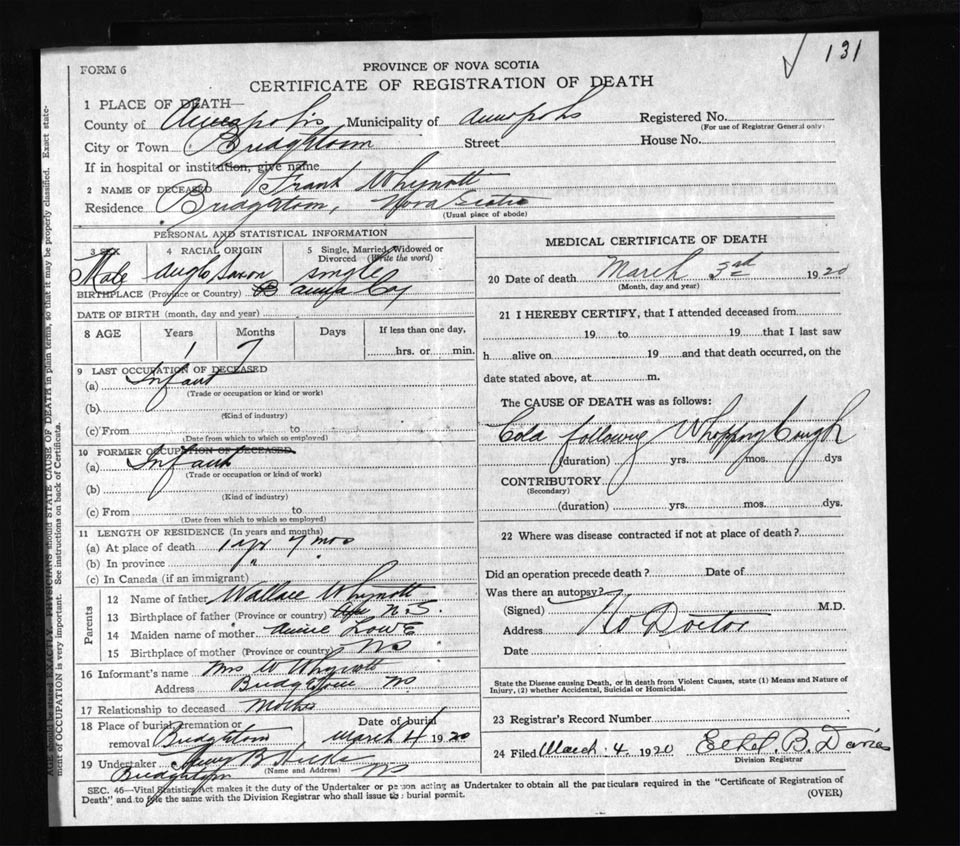 131
FORM 6
PROVINCE OF NOVA SCOTIA
CERTIFICATE OF REGISTRATION OF DEATH
1 PLACE OF DEATH—
County of Annapolis Municipality of Annapolis Registered No.
(For use of Registrar General only)
City or Town Bridgetown Street House No.
If in hospital or institution, give name
2 NAME OF DECEASED Frank Whynott
Residence Bridgetown, Nova Scotia
(Usual place of abode)
PERSONAL AND STATISTICAL INFORMATION
3 SEX 4 RACIAL ORIGIN 5 Single, Married, Widowed or Divorced (Write the word)
Male Anglo Saxon single
BIRTHPLACE (Province or Country) Anna Co
DATE OF BIRTH (month, day and year)
8 AGE Years Months Days If less than one day,
1 7 hrs. or min.
9 LAST OCCUPATION OF DECEASED
(a) Infant
(Trade or occupation or kind or work)
(b)
(Kind of industry)
(c) From to
(Date from which to which so employed)
10 FORMER OCCUPATION OF DECEASED
(a) Infant
(Trade or occupation or kind or work)
(b)
(Kind of industry)
(c) From to
(Date from which to which so employed)
11 LENGTH OF RESIDENCE (In years and months)
(a) At place of death 1 yr 7 mos
(b) In province "
(c) In Canada (if an immigrant)
Parents
12 Name of father Wallace Whynott
13 Birthplace of father (Province or country) N.S.
14 Maiden name of mother Annie Lowe
15 Birthplace of mother (Province or country) NS
16 Informant's name Mrs W Whynott
Address Bridgetown NS
17 Relationship to deceased Mother
18 Place of burial, cremation or removal Bridgetown Date of burial March 4 1920
19 Undertaker B Hicks
(Name and Address)
Bridgetown NS
MEDICAL CERTIFICATE OF DEATH
20 Date of death March 3rd 1920
(Month, day and year)
21 I HEREBY CERTIFY, that I attended deceased from
19 to 19 that I last saw
h alive on 19 and that death occurred, on the
date stated above, at m.
The CAUSE OF DEATH was as follows:
Cold following Whopping Cough
(duration) yrs. mos. dys
CONTRIBUTORY
(Secondary)
(duration) yrs. mos. dys.
22 Where was disease contracted if not at place of death?
Did an operation precede death? Date of
Was there an autopsy?
(Signed) M.D.
No Doctor
Address
Date
State the Disease causing Death, or in death from Violent Causes, state (1) Means and Nature of
Injury, (2) whether Accidental, Suicidal or Homicidal.
23 Registrar's Record Number
24 Filed March 4 1920 Ethel B. Davies
Division Registrar
SEC. 46—Vital Statistics Act makes it the duty of the Undertaker or person acting as Undertaker to obtain all the particulars required in the "Certificate of Registration of
Death" and to file the same with the Division Registrar who shall issue the burial permit.
(OVER)
AGE should be stated EXACTLY. PHYSICIANS should STATE CAUSE OF DEATH in plain terms, so that it may be properly classified. Exact state-
ment of OCCUPATION is very important. See instructions on back of Certificate.